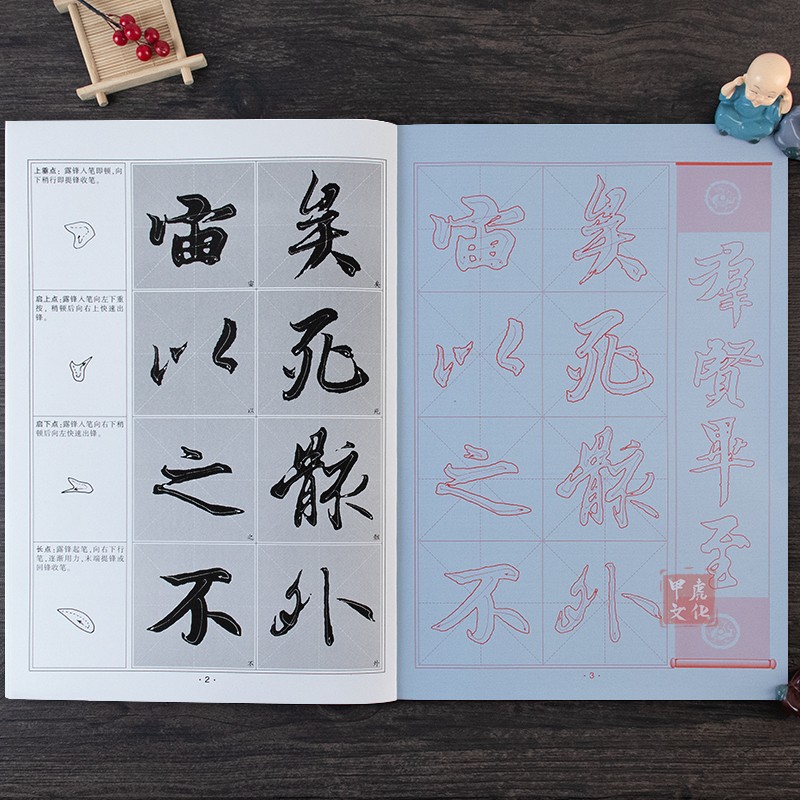 上垂点：露锋入笔即顿,向
下稍行即提锋收笔。
宙 矣
宙 矣
启上点：露锋入笔向左下重
按，稍顿后向右上快速出
锋。
以 死
以 死
启下点：露锋入笔向右下稍
顿后向左快速出锋。
之 骸
之 骸
长点：露锋起笔，向右下行
笔，逐渐用力，末端提锋或
回锋收笔。
不 外
不 外
·2·
宙 矣
以 死
之 骸
不 外
羣賢畢至
甲虎
文化
·3·